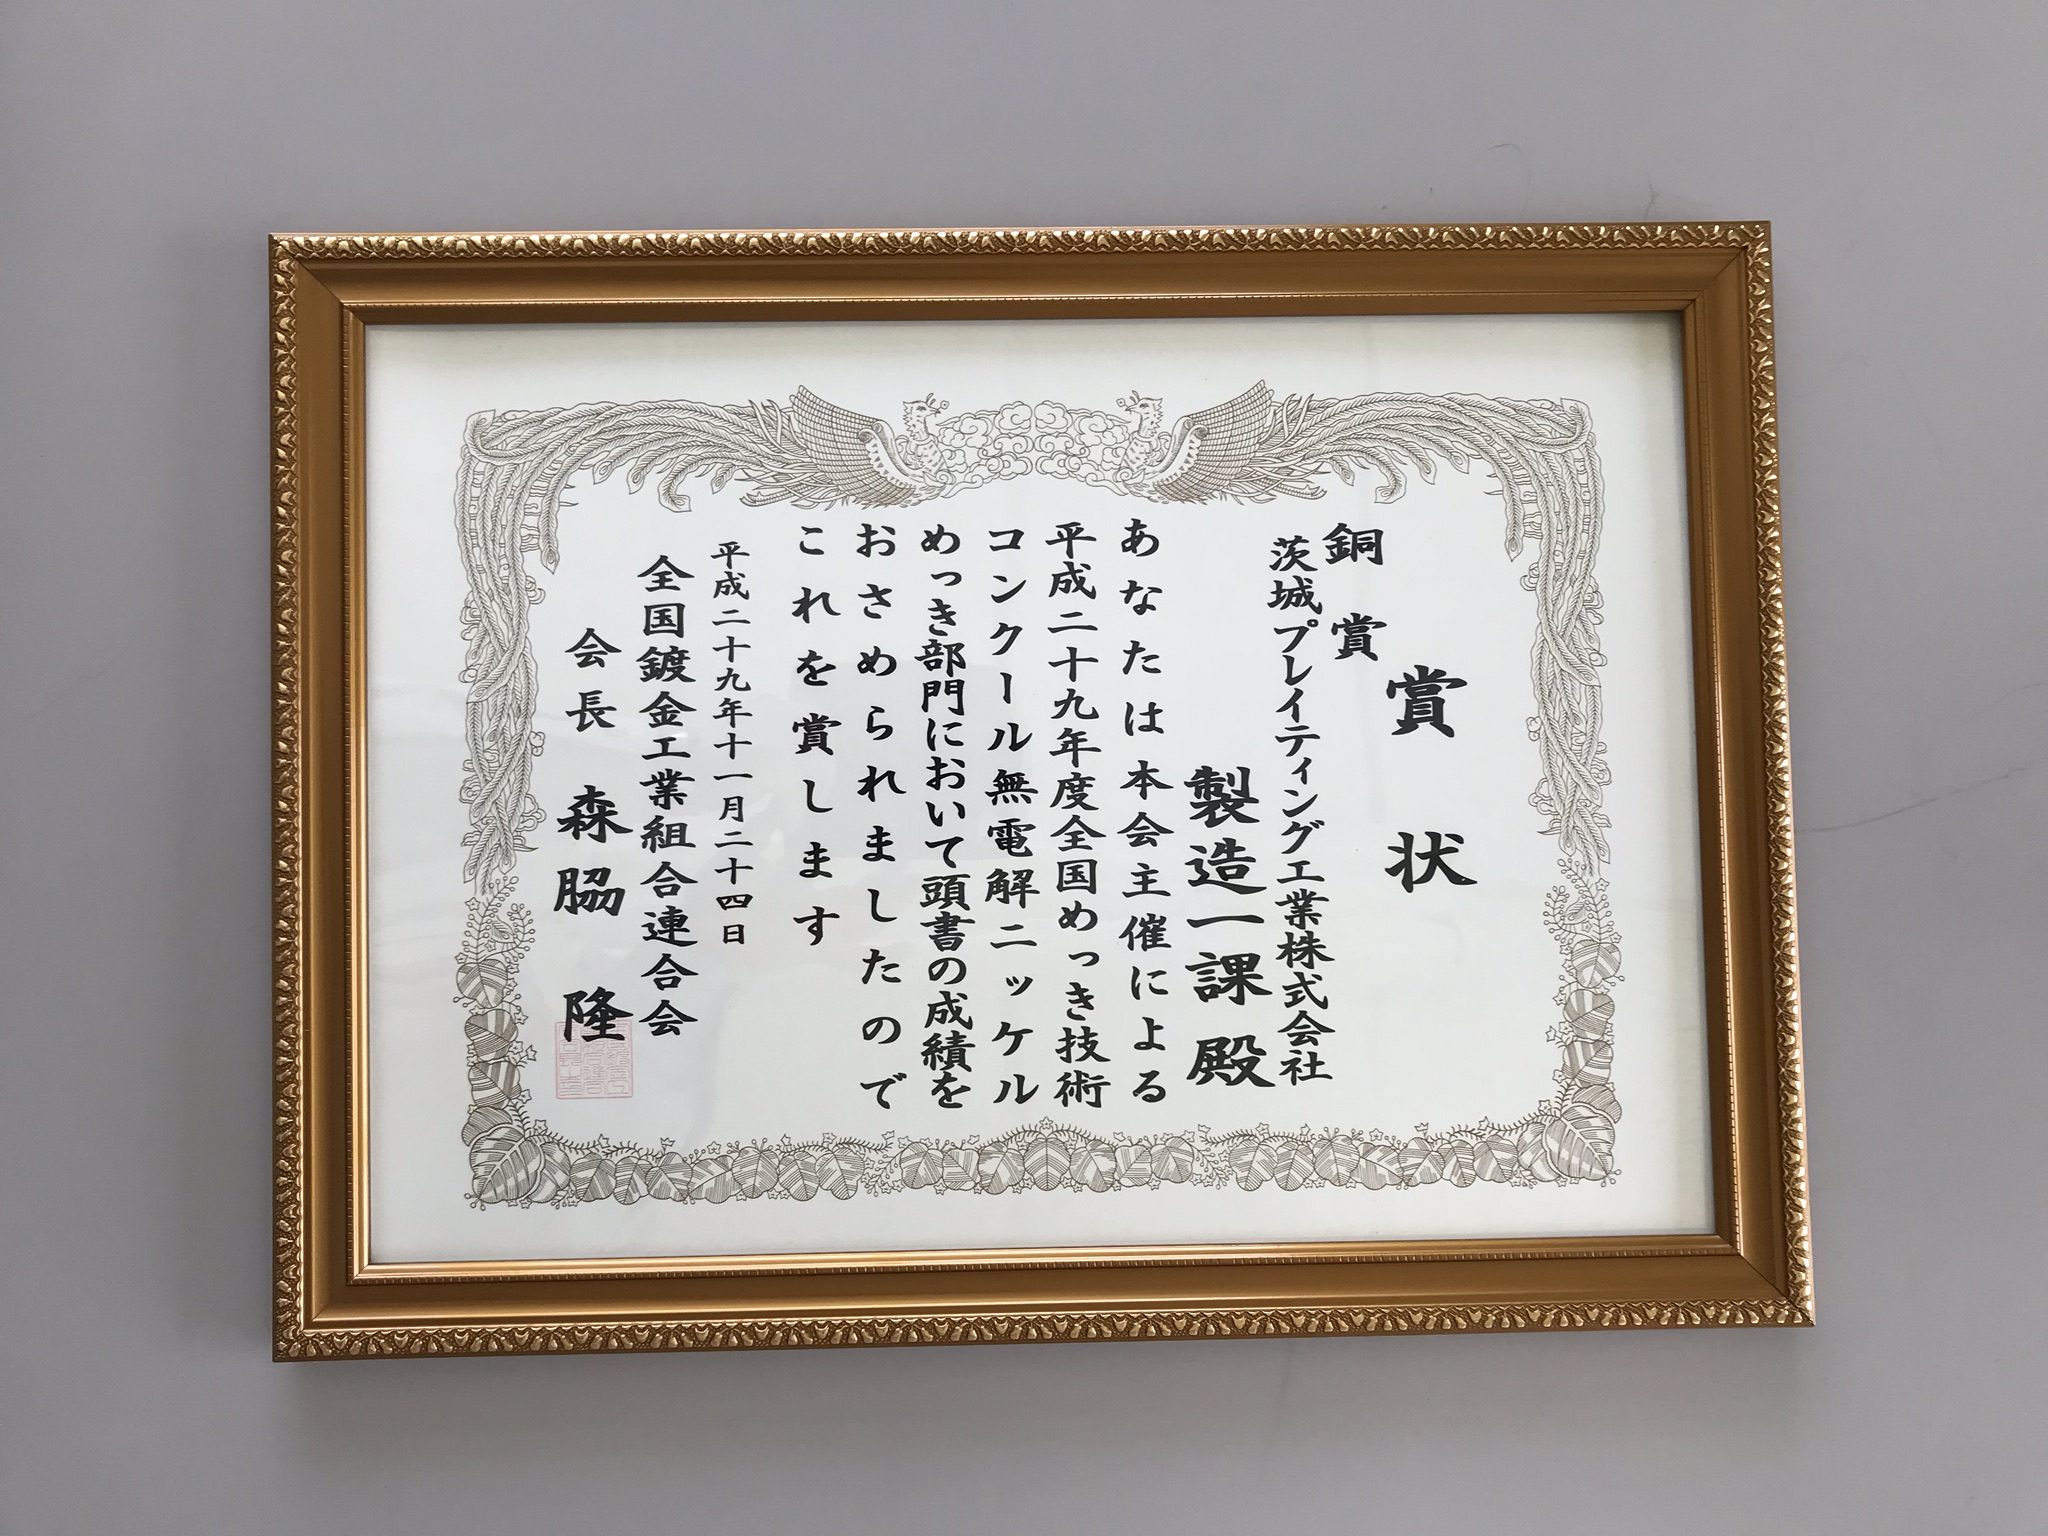 賞状
銅賞
茨城プレイティング工業株式会社
製造一課殿
あなたは本会主催による
平成二十九年度全国めっき技術
コンクール無電解ニッケル
めっき部門において頭書の成績を
おさめられましたので
これを賞します
平成二十九年十一月二十四日
全国鍍金工業組合連合会
会長 森脇隆